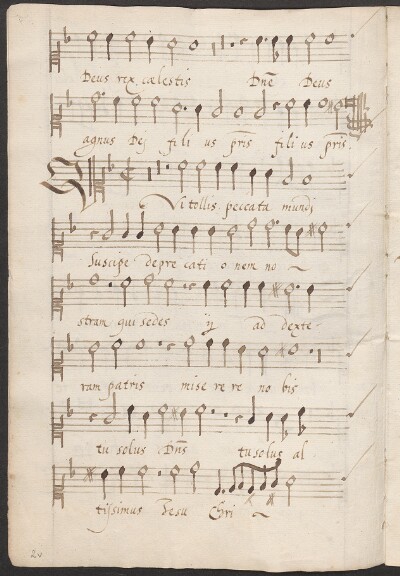 Deus rex cælestis Dnē Deus
agnus Dej fili us pris fili us pris
Qui tollis peccata mundj
Suscipe depre cati o nem no
stram qui sedes ij ad dexte
ram patris mise re re no bis
tu solus Dns tu solus al
tissimus Iesu Chri
2v